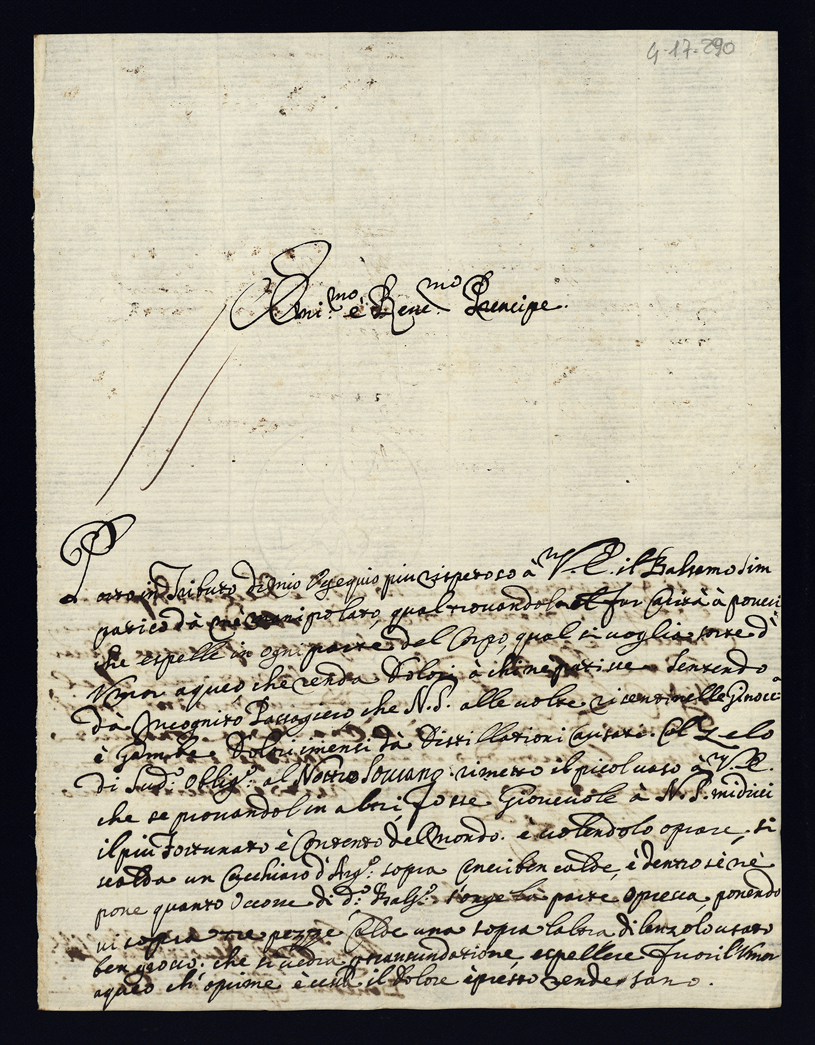 4-17-290
Emi.mo è Reue.mo Prencipe.
Porto in Tributo di mio Ossequio piu rispetoso à V. E. il Balsamo sim
patico dà mè manipolato, qual trouandol far Carità à poueri
che espelle in ogni parte del Corpo, qual si uoglia sorte d'
Vmor aqueo chè renda Dolori à chi ne patisse. Sentendo
dà Incognito Passagiero che N. S. alle uolte risenti nelle Ginocc.a
è Gambe Dolori dà Distillationi Causati. Col Zelo
di Sud.o Oblig.o al Nostro Sourano rimetto il picol uaso à V. E.
che se prouandol in altri, fosse Gioueuole à N. S. mi direi
il più Fortunato è Contento del Mondo. è uolendolo oprare, si
scalda un Cucchiaro d'Arg.o sopra Ceneri ben calde, è dentro sè nè
pone quanto Occore di d.o Bals.o s'onge la parte opressa, ponendo
ui sopra tre pezze Calde una sopra l'altra di lenzolo usato
ben, che si uedrà espellere Fuori l'Vmor
aqueo ch'oprime è il Dolore è presto rende sano.